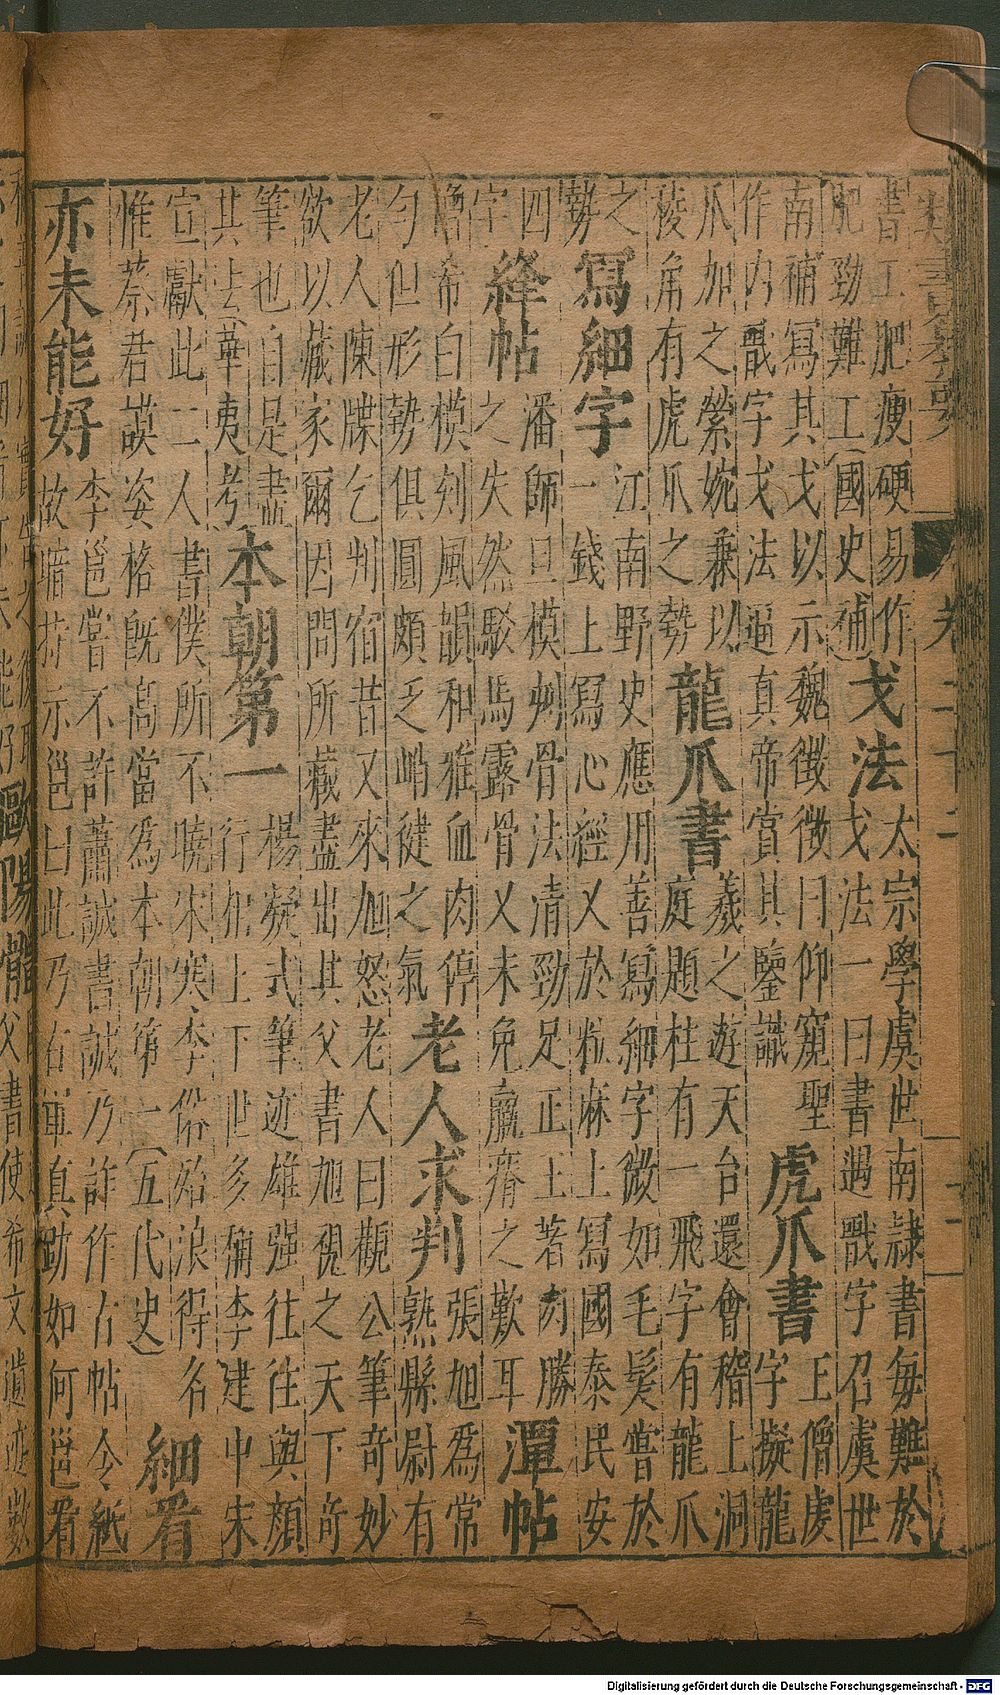 書工肥瘦硬易作
肥勁難工(國史補)
戈法
太宗學虞世南隷書每難於
戈法一日書遇戩字召虞世
南補寫其戈以示魏徵徵曰仰窺聖
作内戩字戈法逼真帝賞其鑒識
虎爪書
王僧虔
字擬龍
爪加之縈婉兼以
稜角有虎爪之勢
龍爪書
羲之遊天台還會稽上洞
庭題柱有一飛字有龍爪
之
勢
寫細字
江南野史應用善寫細字微如毛髮嘗於
一錢上寫心經又於粒麻上寫國泰民安
四
字
絳帖
潘師旦模刻骨法清勁足正王著肉勝
之失然駁馬露骨又未免羸瘠之歎耳
潭帖
僧希白模刻風韻和雅血肉停
勻但形勢俱圓頗乏峭健之氣
老人求判
張旭爲常
熟縣尉有
老人陳牒乞判宿昔又來旭怒老人曰觀公筆奇妙
欲以藏家爾因問所藏盡出其父書旭視之天下奇
筆也自是盡
其法(華夷考)
本朝第一
楊凝式筆迹雄强往往與顔
行相上下世多稱李建中宋
宣獻此二人書僕所不曉宋寒李俗殆浪得名
惟蔡君謨姿格既高當爲本朝第一(五代史)
細看
亦未能好
李邕嘗不許蕭誠書誠乃詐作古帖令紙
故暗持示邕曰此乃右軍真跡如何邕看
Digitalisierung gefördert durch die Deutsche Forschungsgemeinschaft - DFG